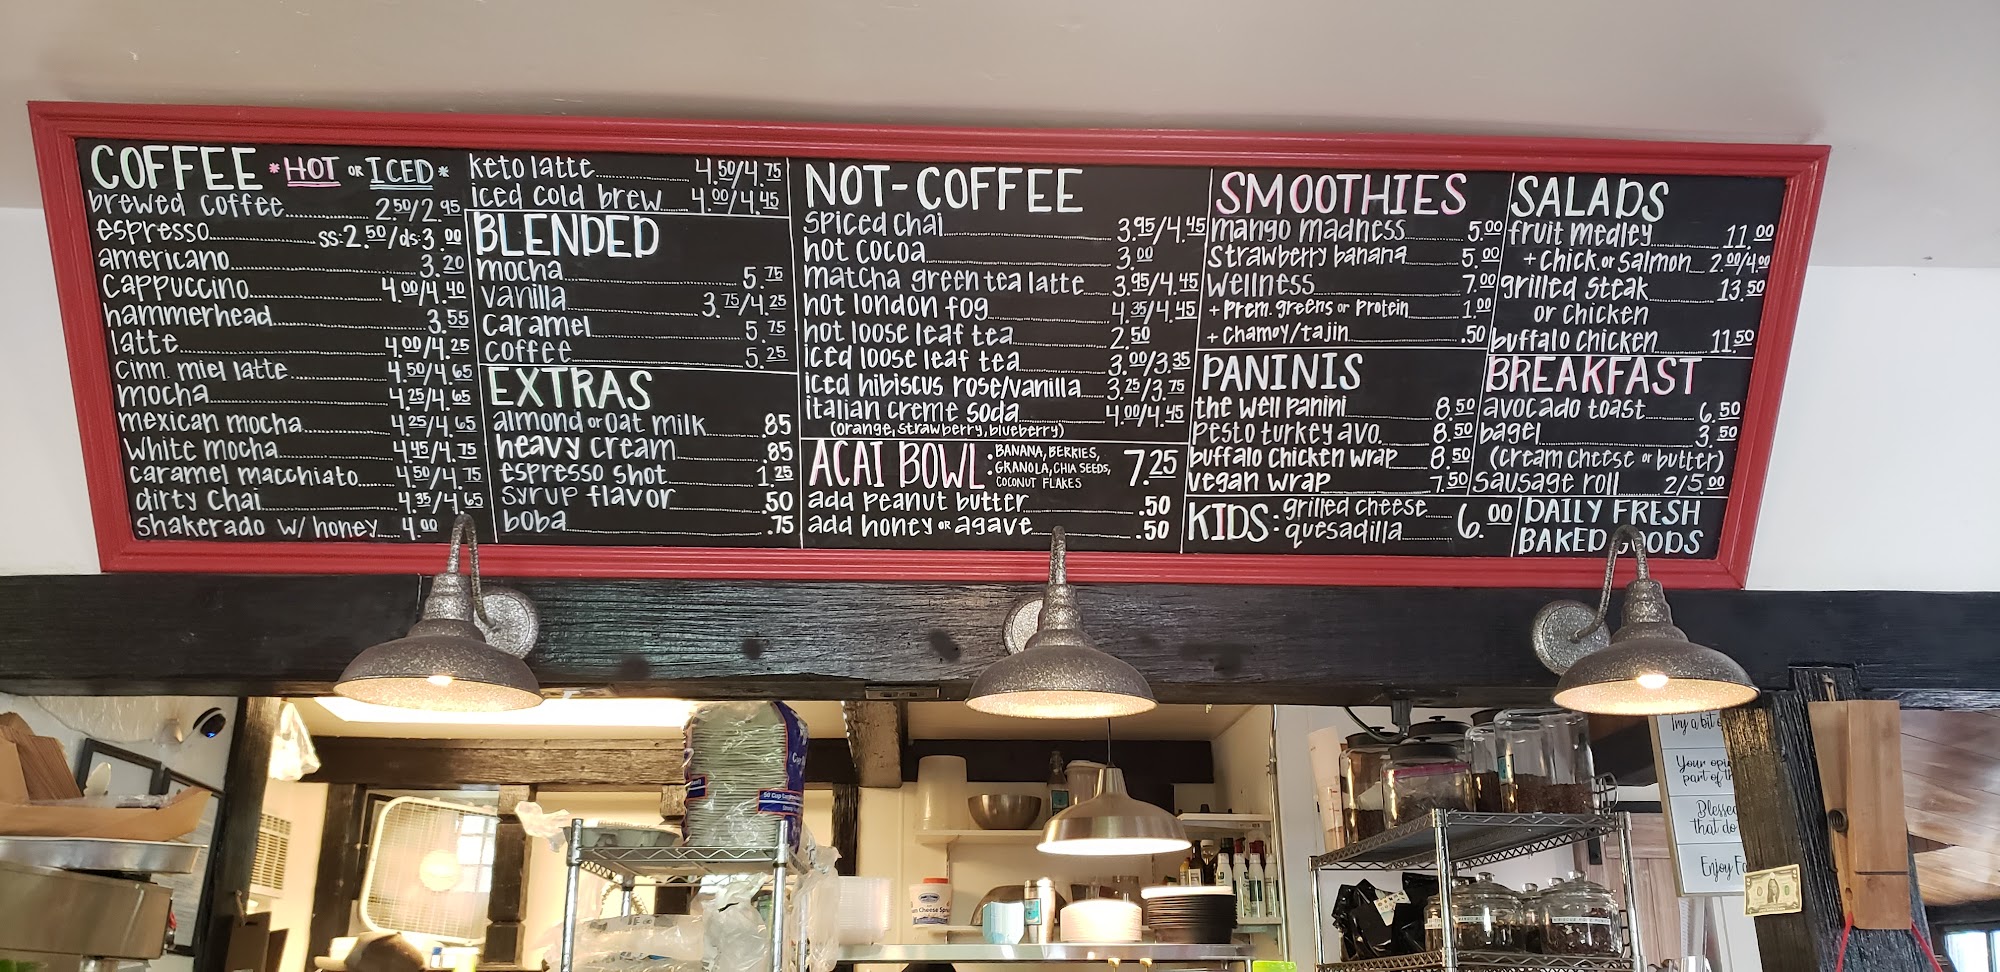 COFFEE *HOT OR ICED*
brewed coffee 2.50/2.95
espresso ss:2.50/ds:3.00
americano 3.20
cappuccino 4.00/4.40
hammerhead 3.55
latte 4.00/4.25
cinn. miel latte 4.50/4.65
mocha 4.25/4.65
mexican mocha 4.25/4.65
white mocha 4.45/4.75
caramel macchiato 4.50/4.75
dirty chai 4.35/4.65
shakerado w/ honey 4.00
keto latte 4.50/4.75
iced cold brew 4.00/4.45
BLENDED
mocha 5.75
vanilla 3.75/4.25
caramel 5.75
coffee 5.25
EXTRAS
almond or oat milk .85
heavy cream .85
espresso shot 1.25
syrup flavor .50
boba .75
NOT-COFFEE
spiced chai 3.95/4.45
hot cocoa 3.00
matcha green tea latte 3.95/4.45
hot london fog 4.35/4.45
hot loose leaf tea 2.50
iced loose leaf tea 3.00/3.35
iced hibiscus rose/vanilla 3.25/3.75
italian creme soda 4.00/4.45
(orange, strawberry, blueberry)
ACAI BOWL: BANANA, BERRIES, 7.25
GRANOLA, CHIA SEEDS,
COCONUT FLAKES
add peanut butter .50
add honey or agave .50
SMOOTHIES
mango madness 5.00
strawberry banana 5.00
wellness 7.00
+ prem. greens or protein 1.00
+ chamoy/tajin .50
PANINIS
the well panini 8.50
pesto turkey avo. 8.50
buffalo chicken wrap 8.50
vegan wrap 7.50
KIDS: grilled cheese 6.00
quesadilla
SALADS
fruit medley 11.00
+ chick. or salmon 2.00/4.00
grilled steak 13.50
or chicken
buffalo chicken 11.50
BREAKFAST
avocado toast 6.50
bagel 3.50
(cream cheese or butter)
sausage roll 2/5.00
DAILY FRESH
BAKED GOODS
Try a bit
Your
part of
Blessed
that do
Enjoy